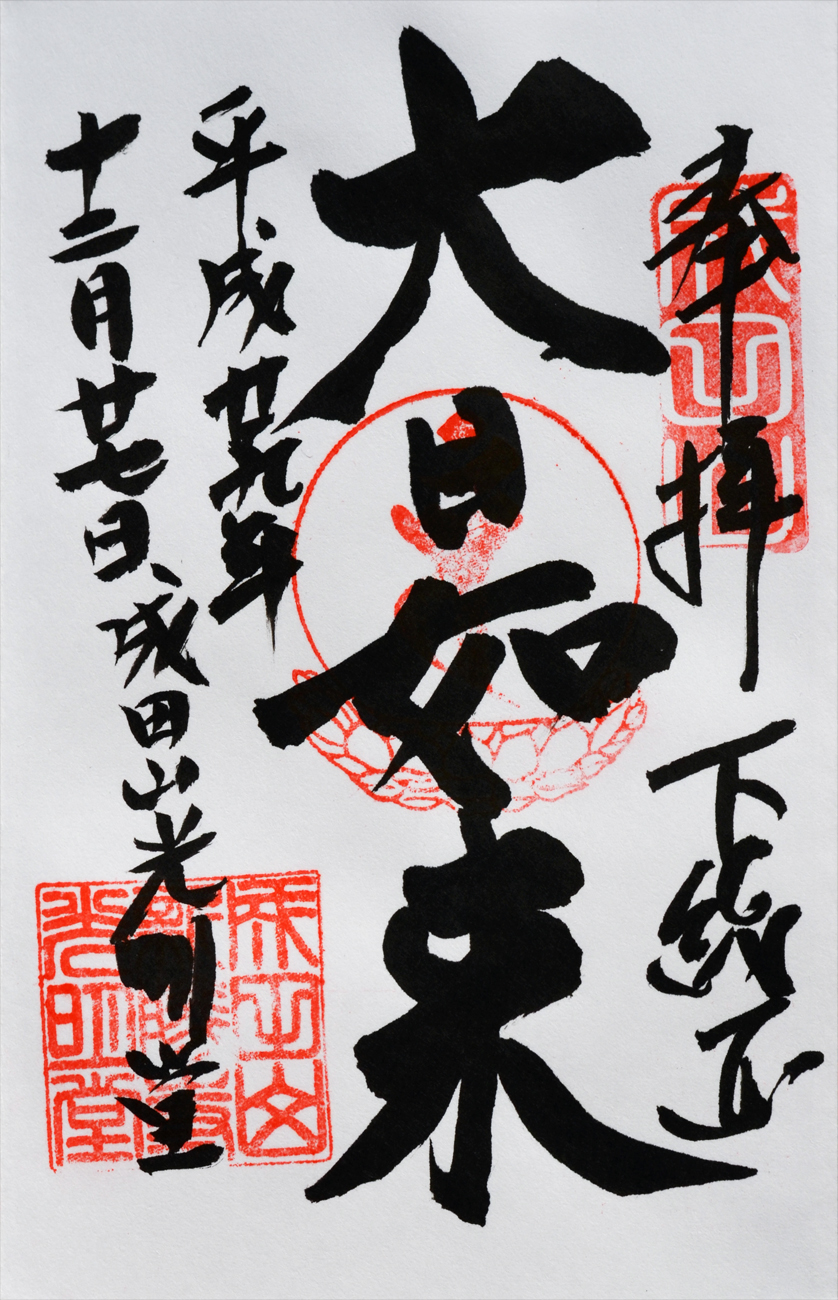 奉拝 下総
大日如来
平成廿九年
十二月廿七日 成田山光明堂
成田山
成田山
光明堂